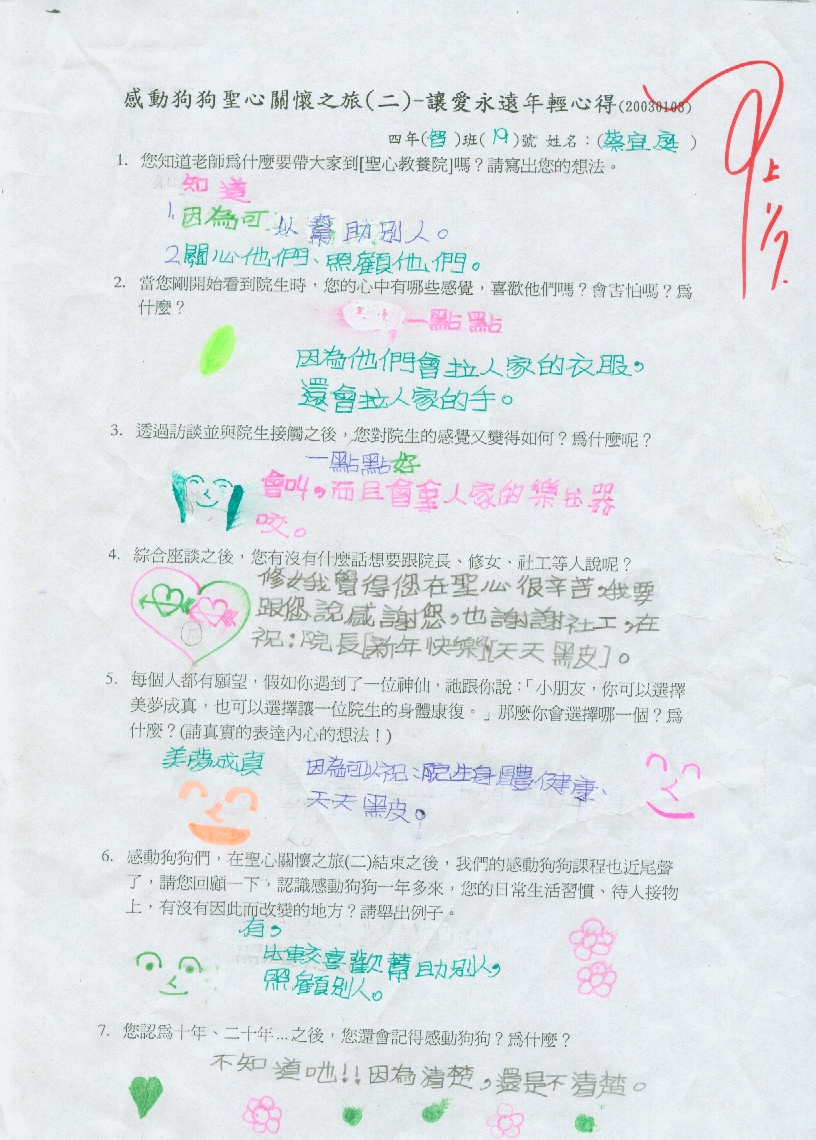 感動狗狗聖心關懷之旅(二)-讓愛永遠年輕心得(20030103)
四年(智)班(19)號 姓名:(蔡宜庭)
1. 您知道老師爲什麼要帶大家到[聖心教養院]嗎?請寫出您的想法。
知道
1.因為可以幫助別人。
2.關心他們、照顧他們。
2. 當您剛開始看到院生時,您的心中有哪些感覺,喜歡他們嗎?會害怕嗎?爲
什麼?
一點點
因為他們會拉人家的衣服,
還會拉人家的手。
3. 透過訪談並與院生接觸之後,您對院生的感覺又變得如何?爲什麼呢?
一點點好
會叫,而且會拿人家的樂器
咬。
4. 綜合座談之後,您有沒有什麼話想要跟院長、修女、社工等人說呢?
修女我覺得您在聖心很辛苦,我要
跟您說感謝您,也謝謝社工,在
祝:院長[新年快樂][天天黑皮]。
5. 每個人都有願望,假如你遇到了一位神仙,祂跟你說:「小朋友,你可以選擇
美夢成真,也可以選擇讓一位院生的身體康復。」那麼你會選擇哪一個?爲
什麼?(請真實的表達內心的想法!)
美夢成真
因為可以祝:院生身體健康、
天天黑皮。
6. 感動狗狗們,在聖心關懷之旅(二)結束之後,我們的感動狗狗課程也近尾聲
了,請您回顧一下,認識感動狗狗一年多來,您的日常生活習慣、待人接物
上,有沒有因此而改變的地方?請舉出例子。
有,
比較喜歡幫助別人,
照顧別人。
7. 您認爲十年、二十年…之後,您還會記得感動狗狗?爲什麼?
不知道吔!!因為清楚,還是不清楚。
上
1/7.